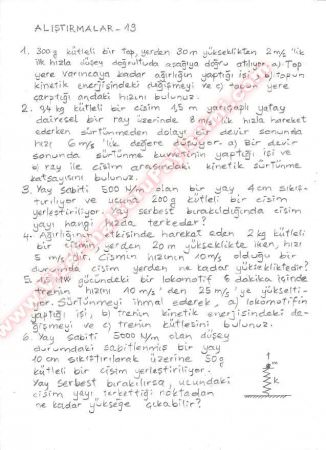 ALIŞTIRMALAR-19
1. 300g kütleli bir top, yerden 30m yükseklikten 2m/s'lik
ilk hızla düşey doğrultuda aşağıya doğru atılıyor. a) Top
yere varıncaya kadar ağırlığın yaptığı işi b) topun
kinetik enerjisindeki değişmeyi ve c) topun yere
çarptığı andaki hızını bulunuz.
2. 0,4 kg kütleli bir cisim 1,5 m yarıçaplı yatay
dairesel bir ray üzerinde 8 m/s'lik hızla hareket
ederken sürtünmeden dolayı bir devir sonunda
hızı 6 m/s'lik değere düşüyor. a) Bir devir
sonunda sürtünme kuvvetinin yaptığı işi ve
b) ray ile cisim arasındaki kinetik sürtünme
katsayısını bulunuz.
3. Yay sabiti 500 N/m olan bir yay 4cm sıkış-
tırılıyor ve ucuna 200g kütleli bir cisim
yerleştiriliyor. Yay serbest bırakıldığında cisim
yayı hangi hızla terkeder?
4. Ağırlığının etkisinde hareket eden 2 kg kütleli
bir cisim yerden 20m yükseklikte iken, hızı
5 m/s'dir. Cismin hızının 10m/s olduğu bir
durumda cisim yerden ne kadar yüksekliktedir?
5. gücündeki bir lokomotif 6 dakika içinde
trenin hızını 10 m/s'den 25 m/s'ye yükselti-
yor. Sürtünmeyi ihmal ederek, a) lokomotifin
yaptığı işi, b) trenin kinetik enerjisindeki de-
ğişmeyi ve c) trenin kütlesini bulunuz.
6. Yay sabiti 5000 N/m olan düşey
durumdaki sabitlenmiş bir yay
10 cm sıkıştırılarak üzerine 50g
kütleli bir cisim yerleştiriliyor.
Yay serbest bırakılırsa, ucundaki
cisim yayı terkettiği noktadan
ne kadar yükseğe çıkabilir?
k